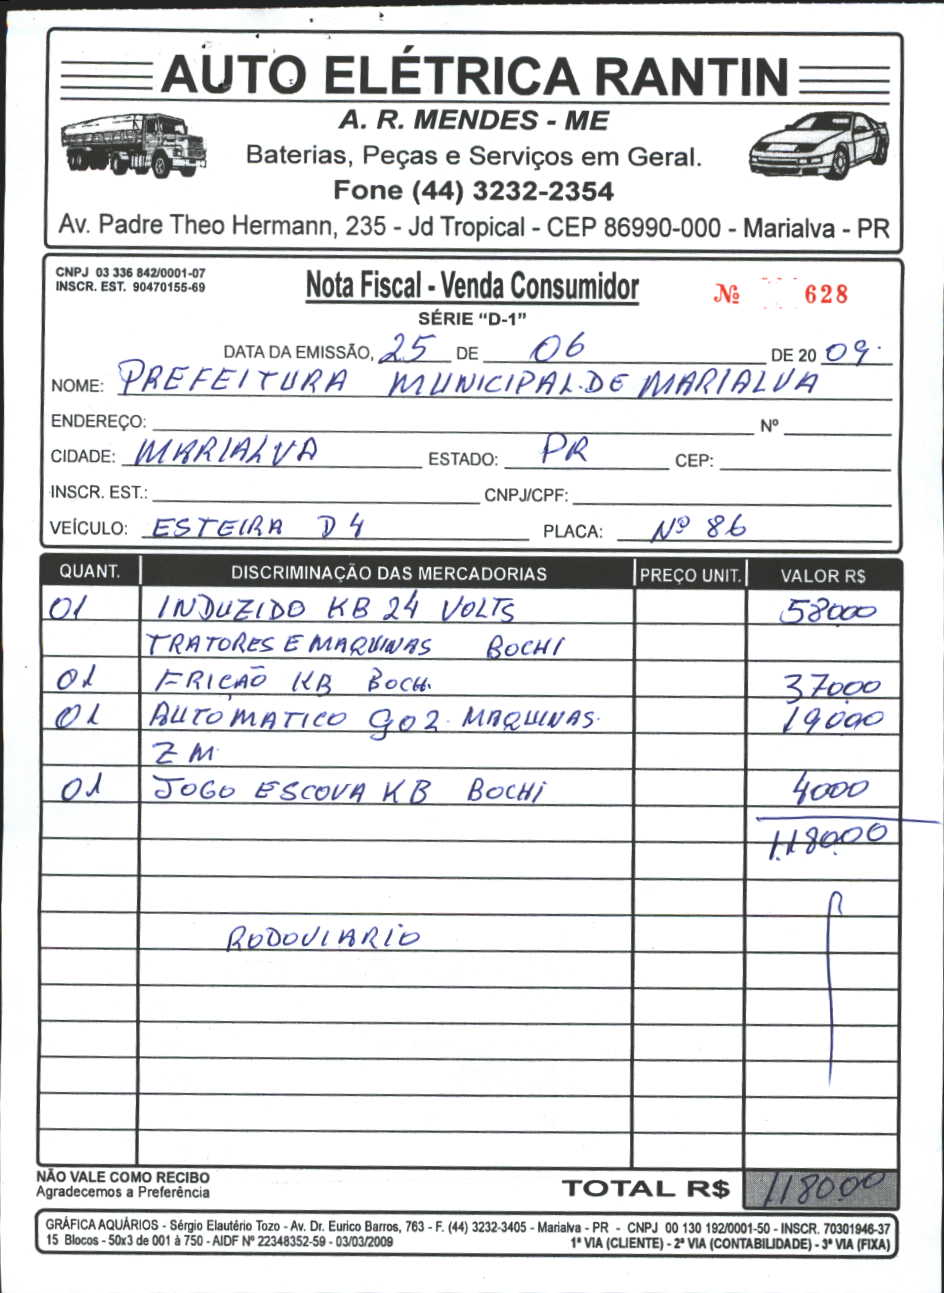 AUTO ELÉTRICA RANTIN
A. R. MENDES - ME
Baterias, Peças e Serviços em Geral.
Fone (44) 3232-2354
Av. Padre Theo Hermann, 235 - Jd Tropical - CEP 86990-000 - Marialva - PR
CNPJ 03 336 842/0001-07
INSCR. EST. 90470155-69
Nota Fiscal - Venda Consumidor
Nº 628
SÉRIE "D-1"
DATA DA EMISSÃO, 25 DE 06 DE 2009.
NOME: PREFEITURA MUNICIPAL DE MARIALVA
ENDEREÇO: Nº
CIDADE: MARIALVA ESTADO: PR CEP:
INSCR. EST.: CNPJ/CPF:
VEÍCULO: ESTEIRA D4 PLACA: Nº 86
QUANT. DISCRIMINAÇÃO DAS MERCADORIAS PREÇO UNIT. VALOR R$
01 INDUZIDO KB 24 VOLTS 58000
TRATORES E MAQUINAS BOCHI
01 FRICÃO KB BOCH. 37000
01 AUTOMATICO 902. MAQUINAS. 19000
ZM
01 JOGO ESCOVA KB BOCHI 4000
1.180.00
RODOVIARIO
NÃO VALE COMO RECIBO
Agradecemos a Preferência
TOTAL R$ 1180.00
GRÁFICA AQUÁRIOS - Sérgio Elautério Tozo - Av. Dr. Eurico Barros, 763 - F. (44) 3232-3405 - Marialva - PR - CNPJ 00 130 192/0001-50 - INSCR. 70301946-37
15 Blocos - 50x3 de 001 à 750 - AIDF Nº 22348352-59 - 03/03/2009 1ª VIA (CLIENTE) - 2ª VIA (CONTABILIDADE) - 3ª VIA (FIXA)